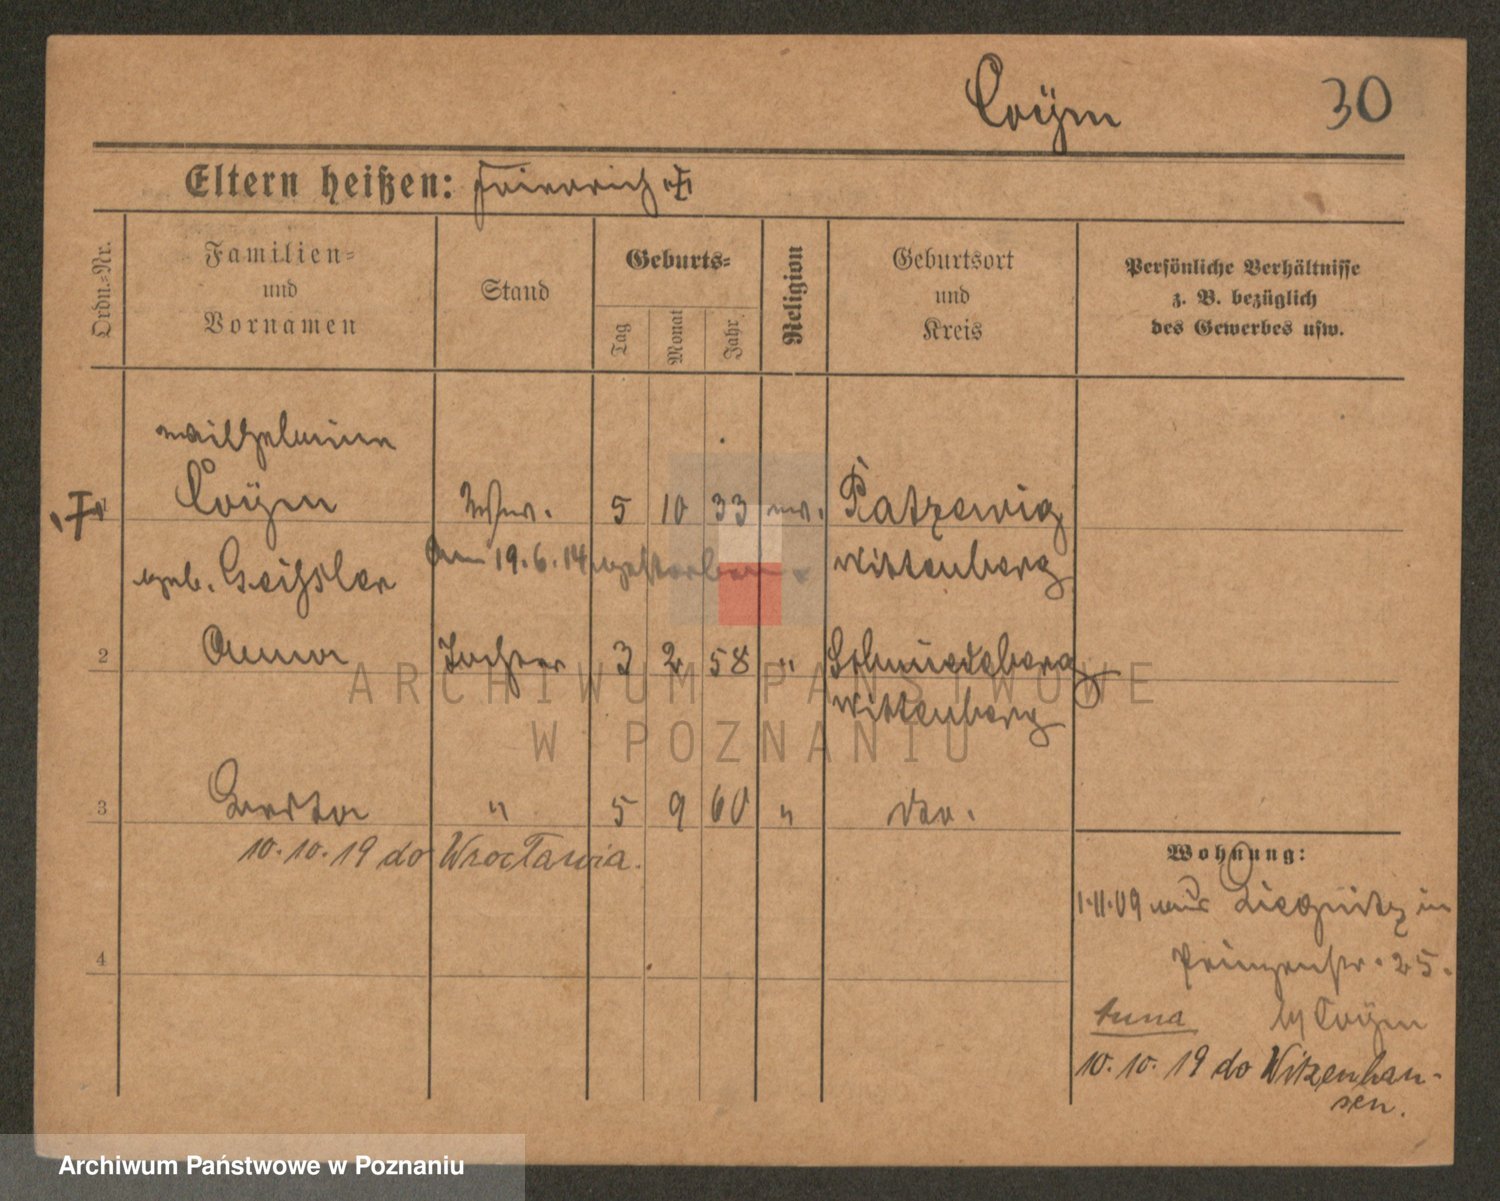 Coÿm 30
Eltern heißen: Friedrich
Ordn.-Nr.
Familien-
und
Vornamen
Stand
Geburts-
Tag
Monat
Jahr
Religion
Geburtsort
und
Kreis
Persönliche Verhältnisse
z. B. bezüglich
des Gewerbes usw.
1
Wilhelmine
Coÿm Wwe. 5 10 33 ev.
geb. Geißler
am 19.6.14 gestorben.
Wittenberg
2 Anna Tochter 3 2 58 " Schmiedeberg
Wittenberg
3 " 5 9 60 " do.
10.10.19 do Wrocławia.
4
Wohnung:
1.11.09 aus Liegnitz in
Prinzenstr. 25.
Anna b/ Coÿm
10.10.19 do Witzenhau-
sen.
ARCHIWUM PAŃSTWOWE
W POZNANIU
Archiwum Państwowe w Poznaniu